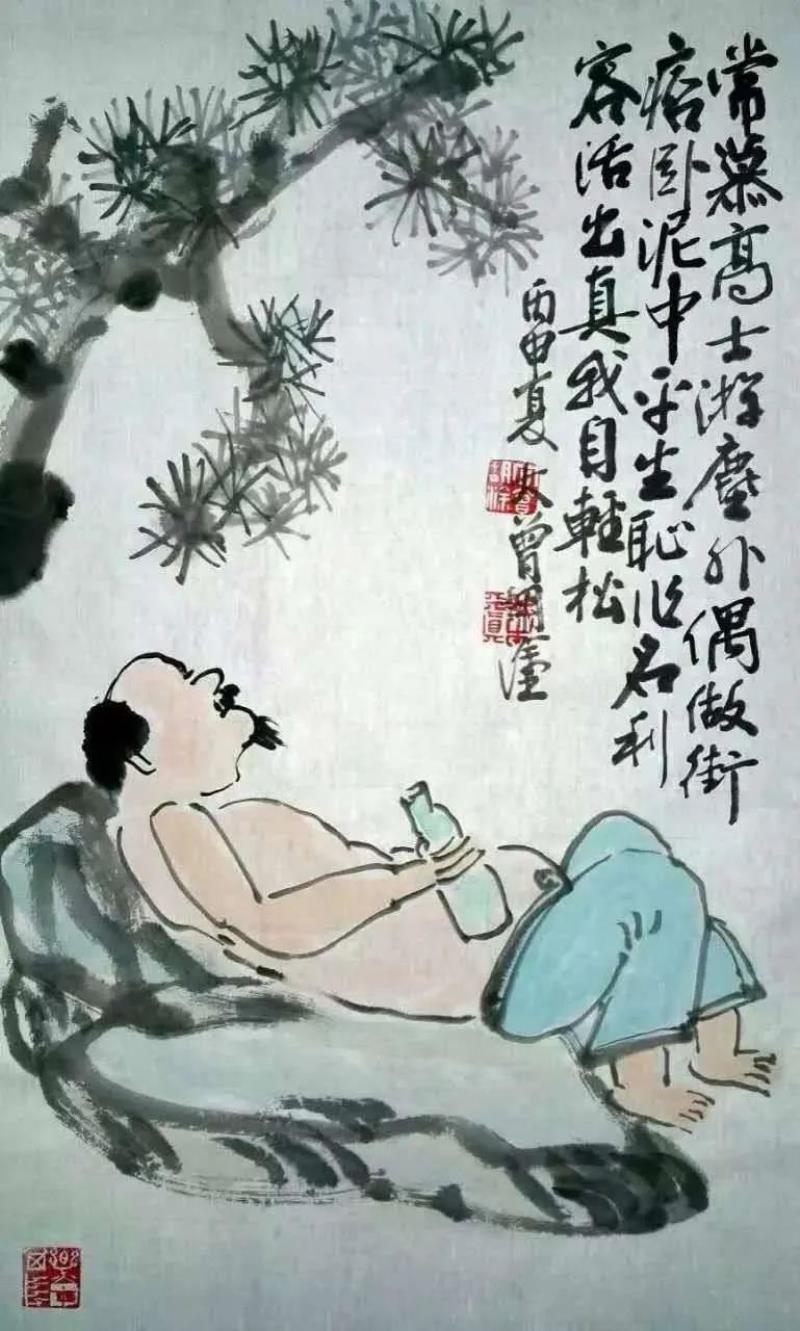 常慕高士游塵外偶做街
痞卧泥中平生恥作名利
容活出真我自輕松
丙申夏
曾